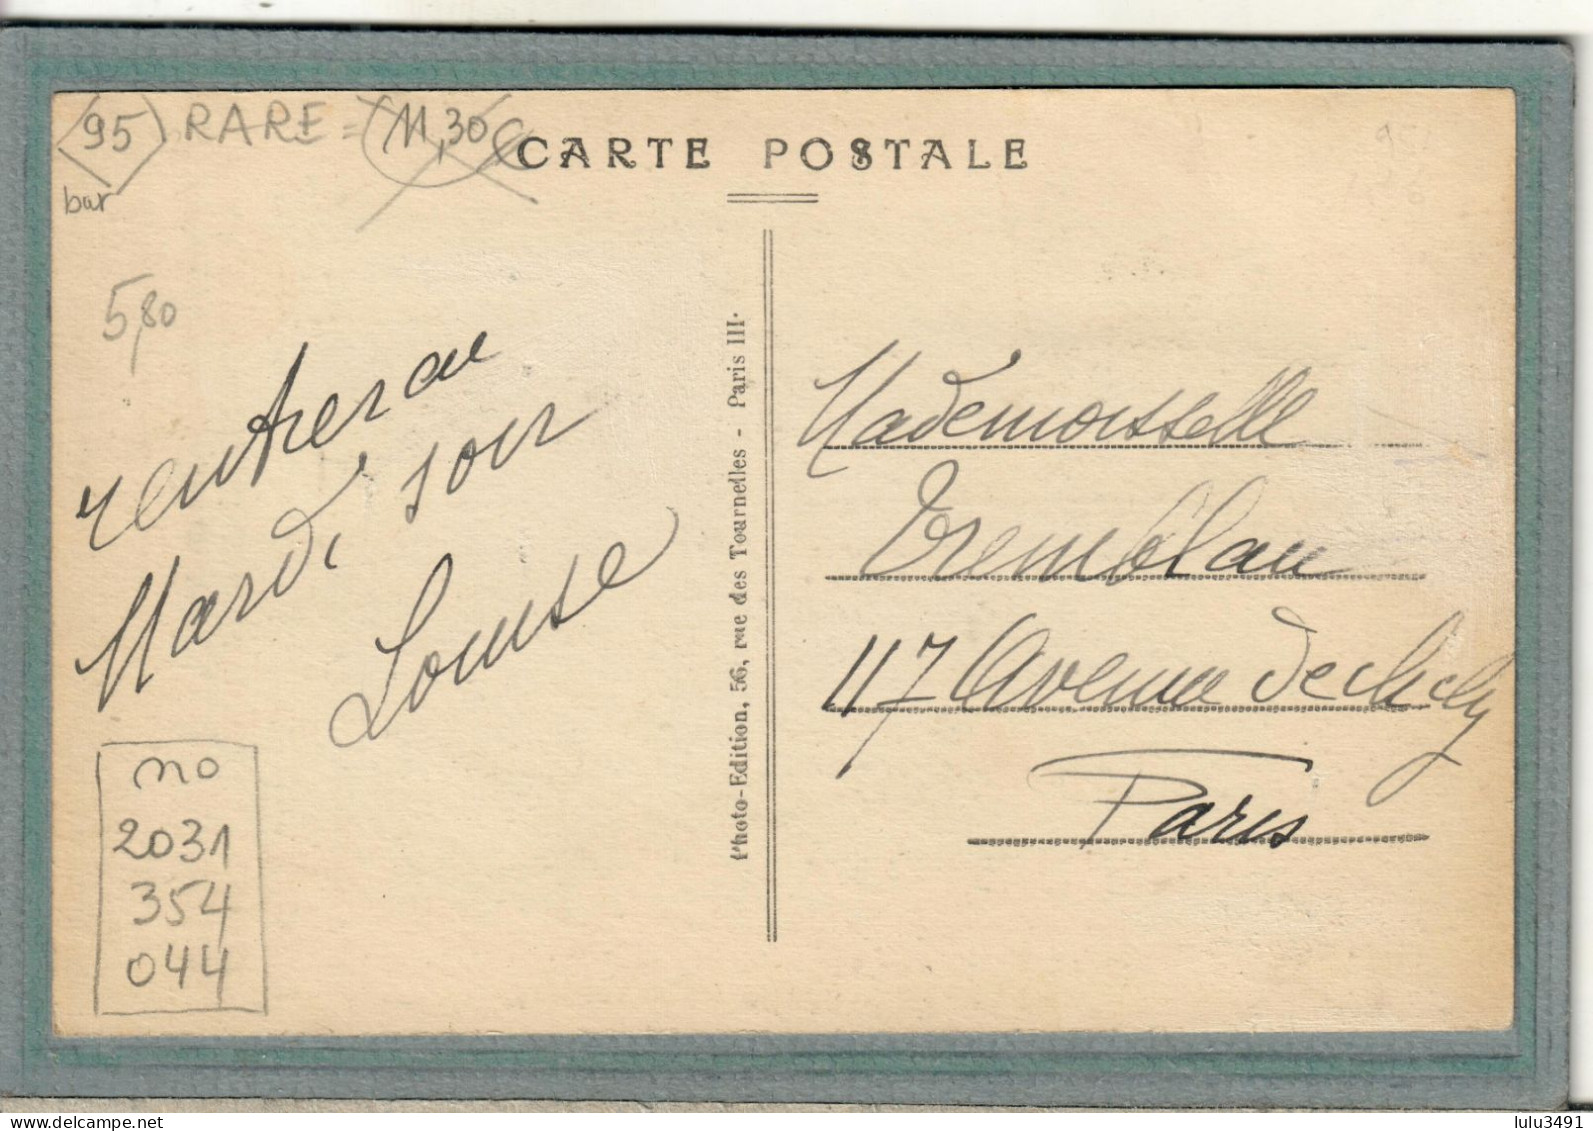 95 RARE = 11,30 €
bar
CARTE POSTALE
5,80
rentrerau
Mardi soir
Louise
Photo-Edition, 56, rue des Tournelles - Paris III.
Mademoisselle
Tremblau
117 Avenue de clichy
Paris
no
2031
354
044
lulu3491